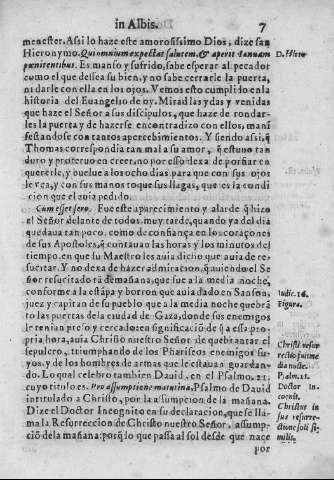 in Albis. 7
menester. Assi lo haze este amorosissimo Dios, dize san
Hieronymo. Qui omnium expectat salutem, & aperit Ianuam
pœnitentibus. Es manso y sufrido, sabe esperar al pecador
como el que dessea su bien, y no sabe cerrarle la puerta,
ni darle con ella en los ojos. Vemos esto cumplido en la
historia del Euangelio de oy. Mirad las ydas y venidas
que haze el Señor a sus discipulos, que haze de rondar-
les la puerta y de hazerse encontradizo con ellos, mani
festandose con tantos aparecimientos. Y siendo assi, q̃
Thomas correspondia tan mal a su amor, q̃ estuuo tan
duro y proteruo en creer, no por esso dexa de porfiar en
quererle, y buelue a los ocho dias para que con sus ojos
le vea, y con sus manos toque sus llagas, que es la condi
cion que el auia pedido.
Cum esset sero. Fue este aparecimiento y alarde q̃ hizo
el Señor delante de todos, muy tarde, quando ya del dia
quedaua tan poco, como de confiança en los coraçones
de sus Apostoles, q̃ contauan las horas y los minutos del
tiempo, en que su Maestro les auia dicho que auia de re-
sucitar. Y no dexa de hazer admiracion, q̃ auiendo el Se
ñor resucitado tã demañana, que fue a la media noche,
conforme a la estãpa y borron que auia dado en Sanson,
juez y capitan de su pueblo que a la media noche quebrã
to las puertas de la ciudad de Gaza, donde sus enemigos
le tenian preso y cercado: en significaciõ de q̃ a essa pro-
pria hora, auia Christo nuestro Señor de quebrantar el
sepulcro, triumphando de los Phariseos enemigos su-
yos, y de los hombres de armas que le estauan guardan-
do. Lo qual celebro tambien Dauid, en el Psalmo. 21.
cuyo titulo es. Pro assumptione matutina. Psalmo de Dauid
intitulado a Christo, por la assumpcion de la mañana.
Dize el Doctor Incognito en su declaracion, que se lla-
ma la Resurreccion de Christo nuestro Señor, assump-
ciõ dela mañana: porq̃ lo que passa al sol desde que nace
por
D. Hiero
Iudic. 16.
Figura.
Christi resur
rectio fuit me
dia nocte.
Psalm. 21.
Doctor in-
cognit.
Christus in
sua resurre-
ctione soli si-
milis.